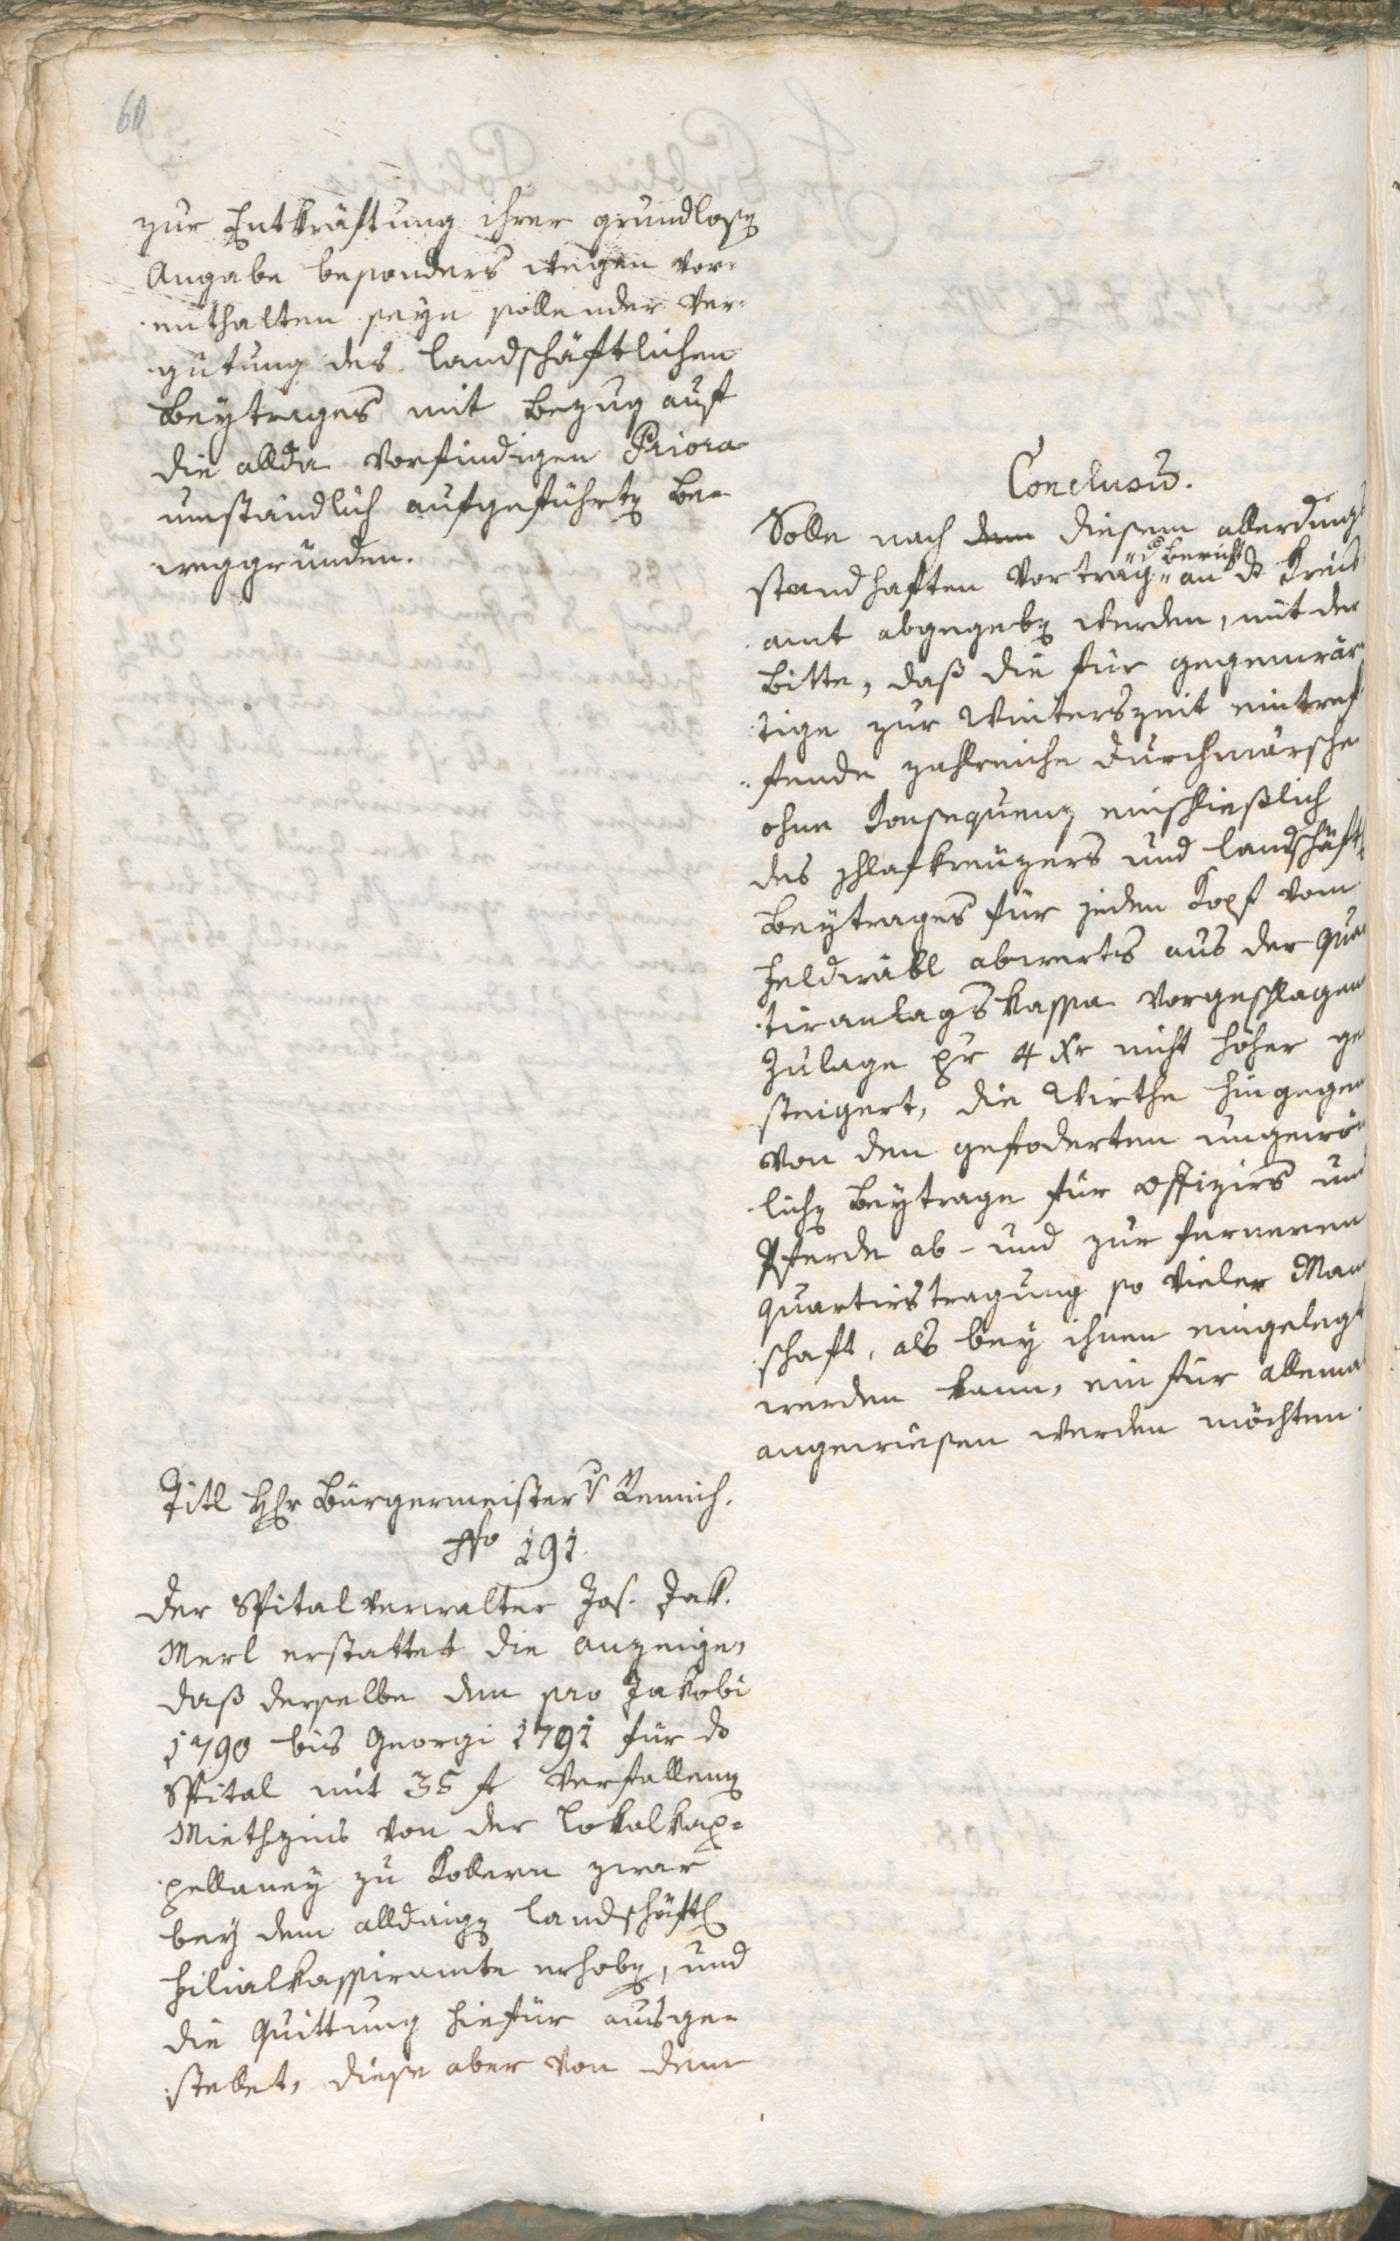 60
zur Entkräftung ihrer grundlosen
Angabe besonders wegen vor-
enthalten seyn sollender Ver-
gütung des landschäftlichen
Beytrages mit Bezug auf
die allda vorfindigen Priora
umständlich aufgeführten Be-
weggründen.
Conclusum.
Solle nach dem diesem allerdings
standhaften Vortrag u. Bericht an das Kreis-
amt abgegeben werden, mit der
Bitte, daß die für gegenwär-
tige zur Winterszeit eintref-
fende zahlreiche Durchmärsche
ohne Konsequenz einschließlich
des Schlafkreuzers und landschäftl.
Beytrages für jeden Kopf vom
Feldwäbl abwerts aus der Quar-
tiranlagskassa vorgeschlagene
Zulage pr 4 Xr nicht höher ge-
steigert, die Wirthe hingegen
von den gefoderten ungewön-
lichen Beytrage für Offizirs und
Pferde ab- und zur ferneren
Quartirstragung so vieler Mann-
schaft, als bey ihnen eingelegt
werden kann, ein für allemal
angewiesen werden möchten.
Titl Hr Bürgermeister v Remich.
No 191.
Der Spitalverwalter Jos. Jak.
Merl erstattet die Anzeige,
daß derselbe den pro Jakobi
1790 bis Georgi 1791 für das
Spital mit 35 f verfallenen
Miethzins von der Lokalkap-
pellaney zu Kollern zwar
bey dem alldaigen landschäftl.
Filialkassiramte erhoben, und
die Quittung hiefür ausge-
stellet, diese aber von dem